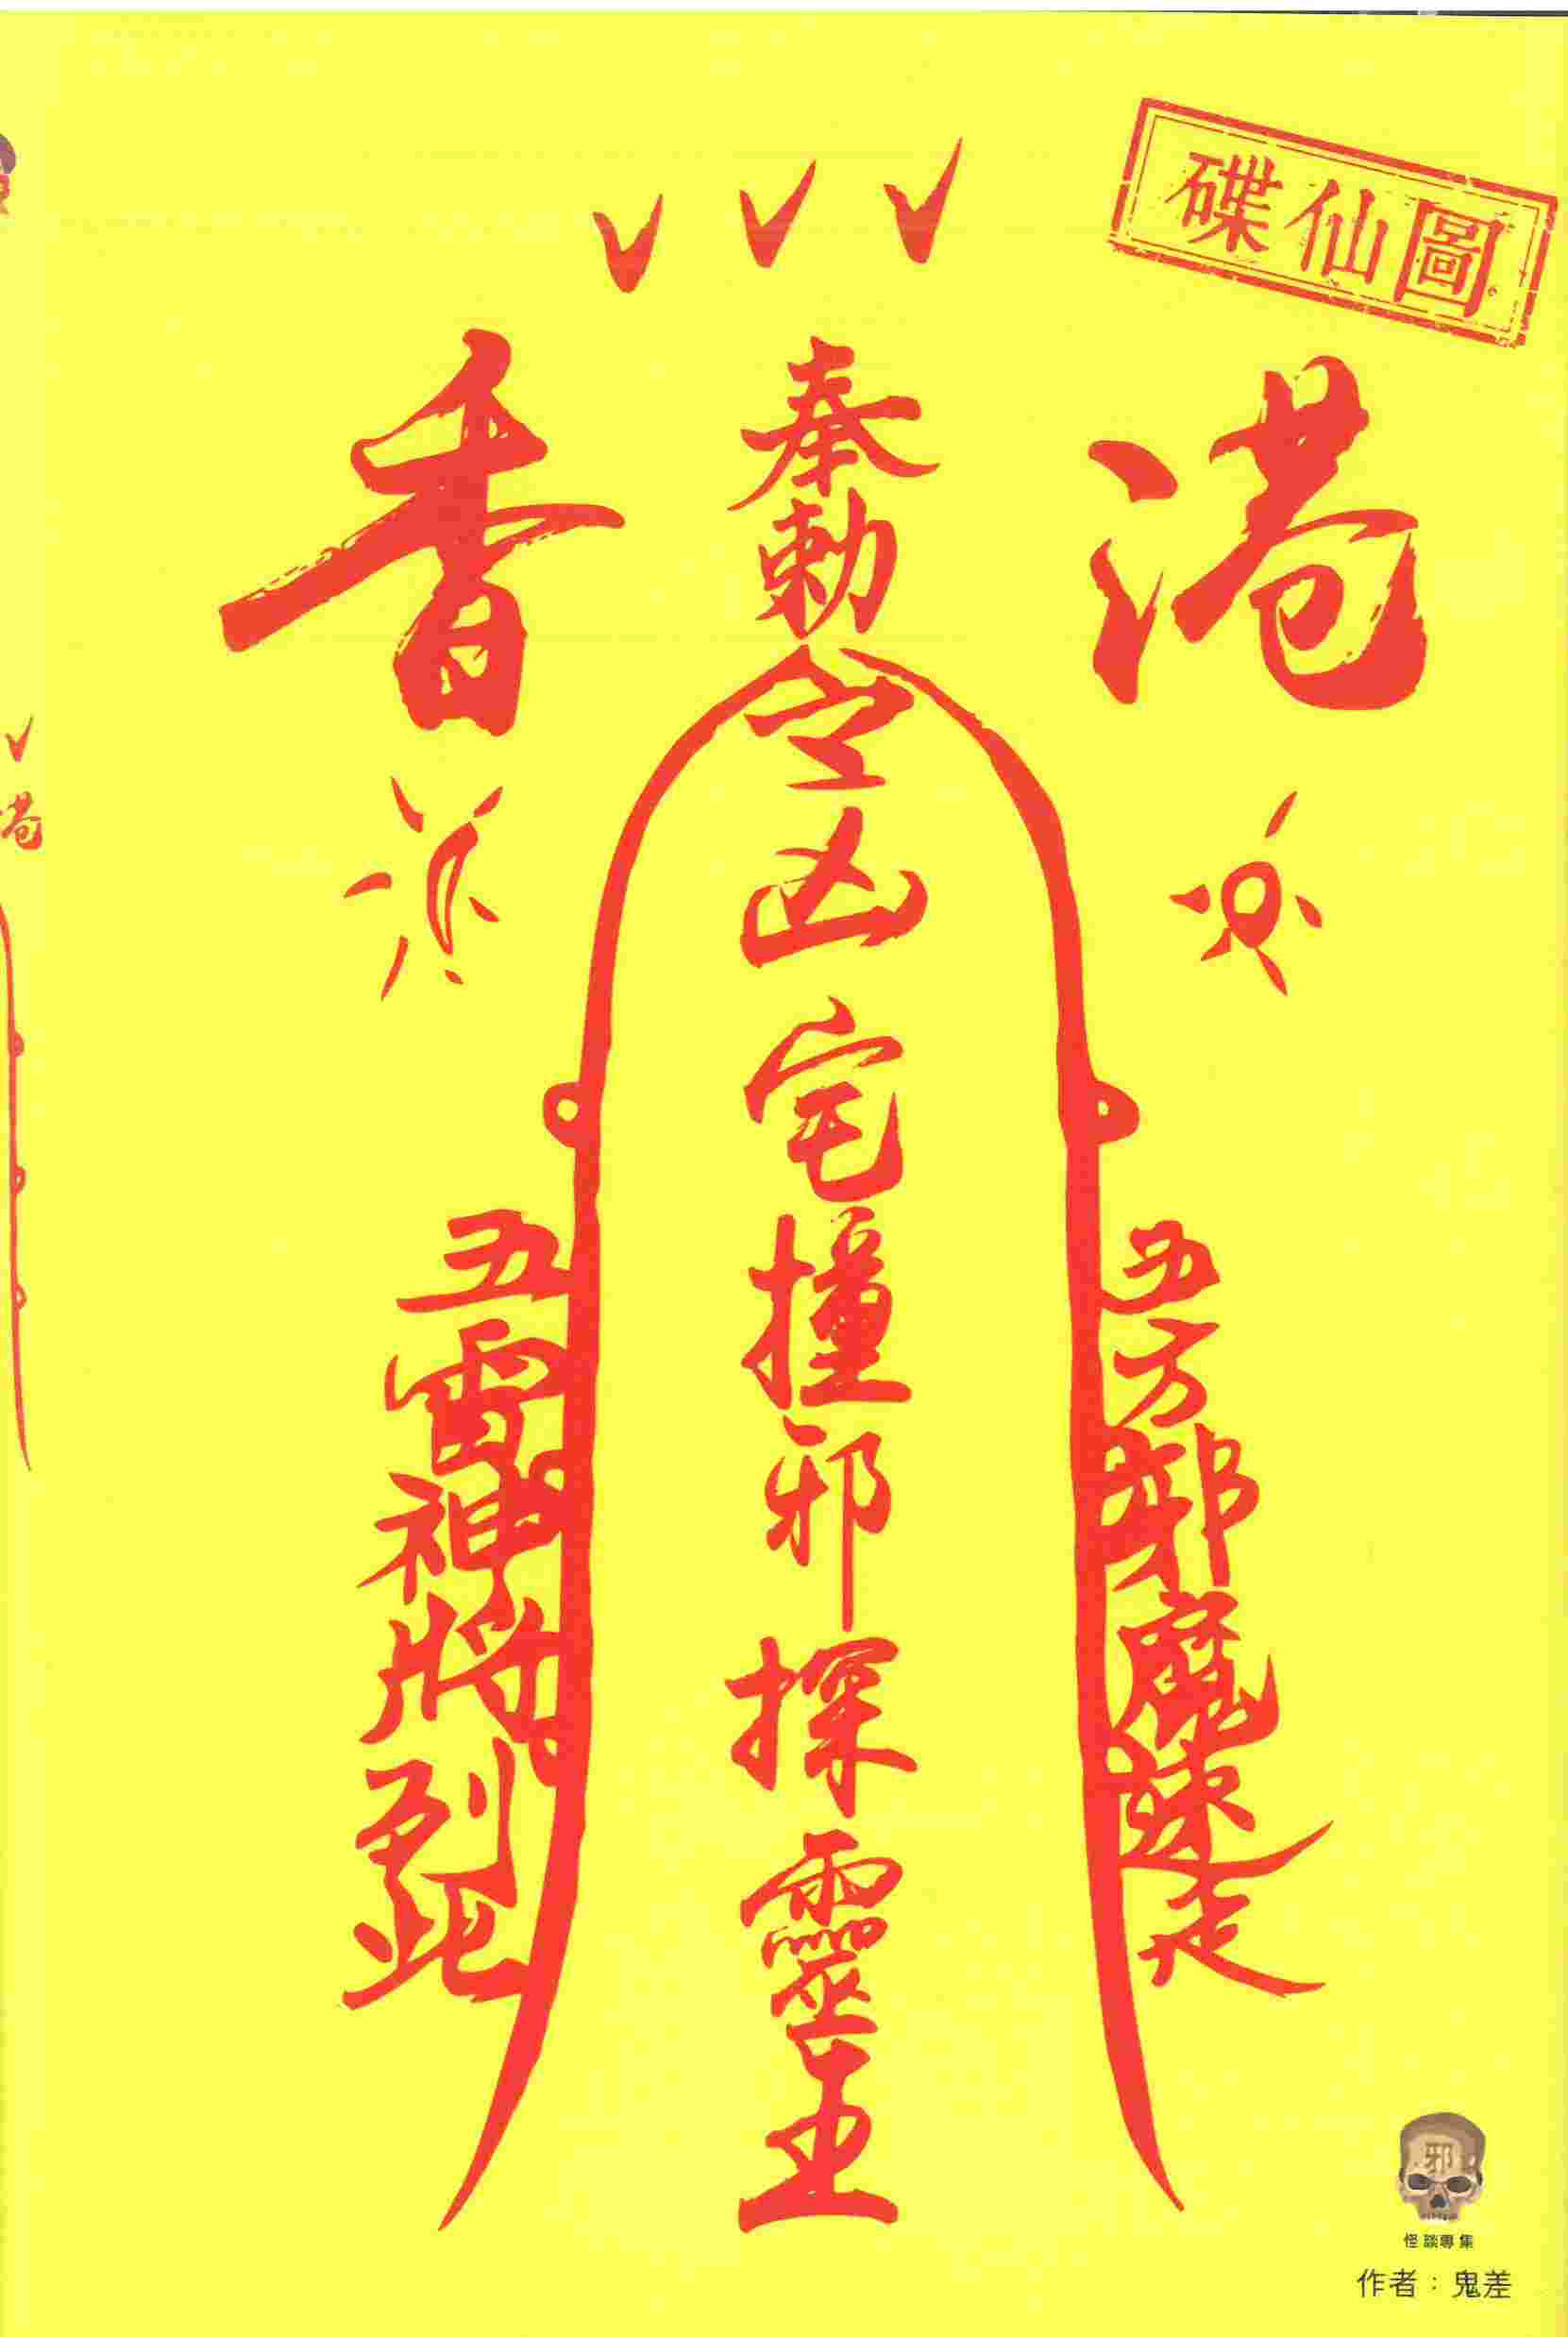 碟仙圖
香港
奉勅令凶宅撞邪探靈王
五雷神將到此
五方邪魔速走
邪
怪談專集
作者：鬼差
港